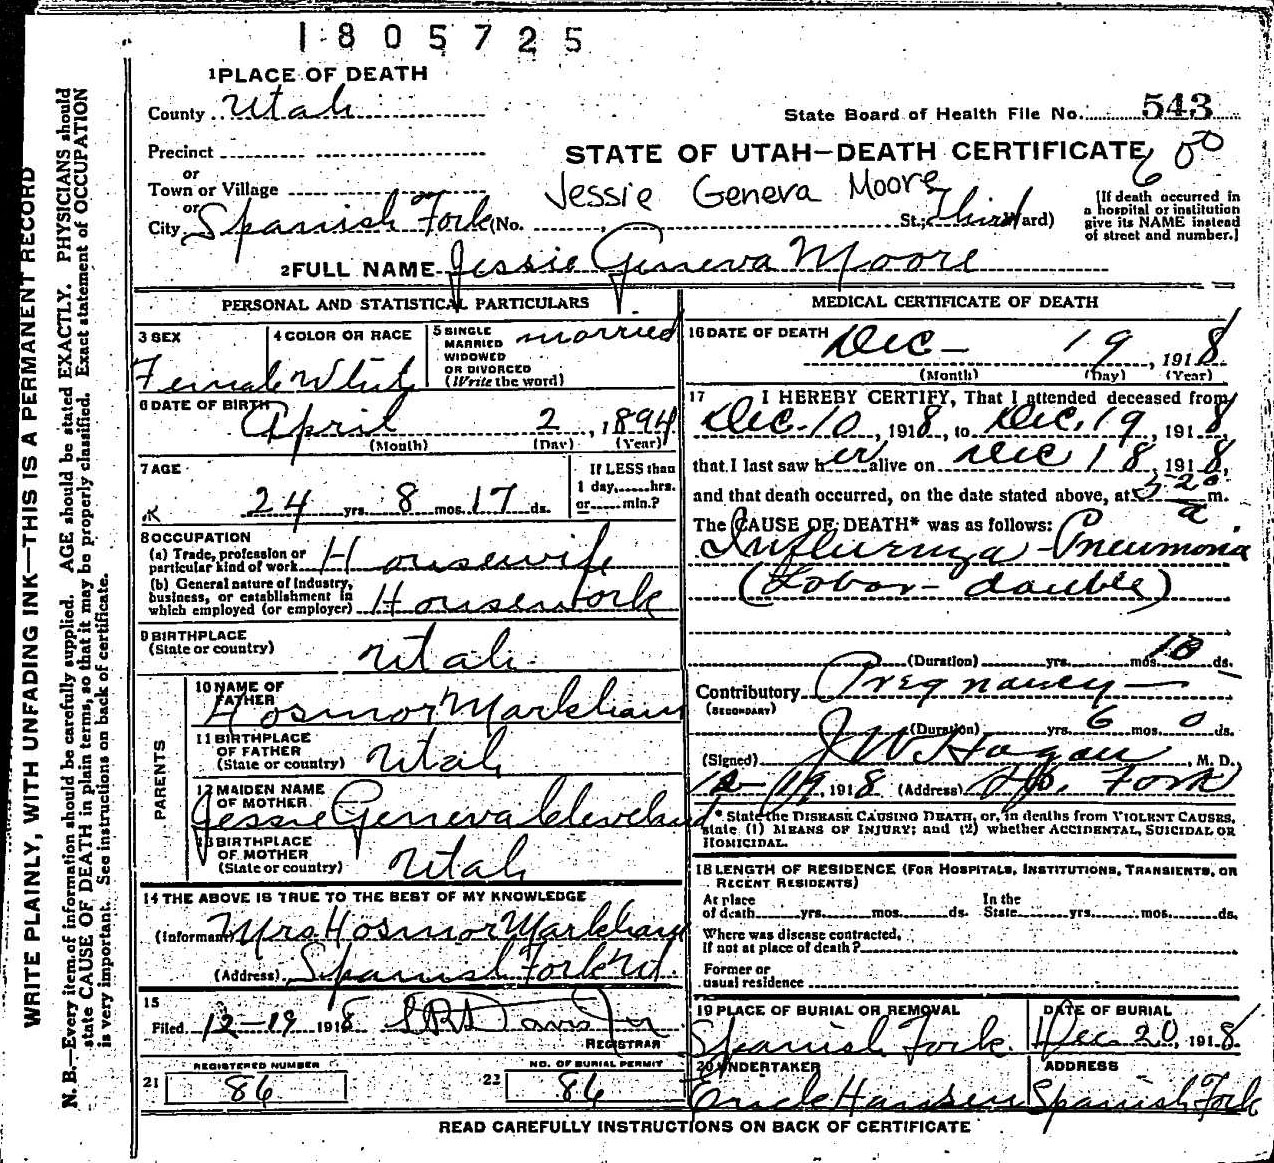 1805725
1 PLACE OF DEATH
County Utah
State Board of Health File No. 543
Precinct
or
Town or Village
or
City Spanish Fork (No. St.; Third Ward)
STATE OF UTAH—DEATH CERTIFICATE
Jessie Geneva Moore
[If death occurred in
a hospital or institution
give its NAME instead
of street and number.]
2 FULL NAME Jessie Geneva Moore
PERSONAL AND STATISTICAL PARTICULARS
3 SEX
Female
4 COLOR OR RACE
White
5 SINGLE
MARRIED
WIDOWED
OR DIVORCED
(Write the word)
married
6 DATE OF BIRTH
April 2, 1894
(Month) (Day) (Year)
7 AGE
24 yrs. 8 mos. 17 ds.
If LESS than
1 day,......hrs.
or......min.?
8 OCCUPATION
(a) Trade, profession or
particular kind of work Housewife
(b) General nature of Industry,
business, or establishment in
which employed (or employer) Housework
9 BIRTHPLACE
(State or country) Utah
PARENTS
10 NAME OF
FATHER Hosmor Markham
11 BIRTHPLACE
OF FATHER
(State or country) Utah
12 MAIDEN NAME
OF MOTHER
Jessie Geneva Cleveland
13 BIRTHPLACE
OF MOTHER
(State or country) Utah
14 THE ABOVE IS TRUE TO THE BEST OF MY KNOWLEDGE
(Informant) Mrs Hosmor Markham
(Address) Spanish Fork Ut.
15
Filed 12-19 1918 Davis Jr
REGISTRAR
21 REGISTERED NUMBER
86
22 NO. OF BURIAL PERMIT
86
MEDICAL CERTIFICATE OF DEATH
16 DATE OF DEATH
Dec- 19, 1918
(Month) (Day) (Year)
17 I HEREBY CERTIFY, That I attended deceased from
Dec. 10, 1918, to Dec. 19, 1918
that I last saw her alive on Dec 18, 1918,
and that death occurred, on the date stated above, at 5 20 a m.
The CAUSE OF DEATH* was as follows:
Influenza-Pneumonia
(Lobar-double)
(Duration) yrs. mos. 10 ds.
Contributory Pregnancy
(SECONDARY)
(Duration) yrs. 6 mos. 0 ds.
(Signed) J W Hagan, M. D.
12-19, 1918 (Address) Sp. Fork
* State the DISEASE CAUSING DEATH, or, in deaths from VIOLENT CAUSES,
state (1) MEANS OF INJURY; and (2) whether ACCIDENTAL, SUICIDAL OR
HOMICIDAL.
18 LENGTH OF RESIDENCE (FOR HOSPITALS, INSTITUTIONS, TRANSIENTS, OR
RECENT RESIDENTS)
At place
of death yrs. mos. ds.
In the
State yrs. mos. ds.
Where was disease contracted,
If not at place of death?
Former or
usual residence
19 PLACE OF BURIAL OR REMOVAL
Spanish Fork.
DATE OF BURIAL
Dec. 20, 1918.
20 UNDERTAKER
Hansen
ADDRESS
Spanish Fork
READ CAREFULLY INSTRUCTIONS ON BACK OF CERTIFICATE
WRITE PLAINLY, WITH UNFADING INK—THIS IS A PERMANENT RECORD
N. B.—Every item of information should be carefully supplied. AGE should be stated EXACTLY. PHYSICIANS should
state CAUSE OF DEATH in plain terms, so that it may be properly classified. Exact statement of OCCUPATION
is very important. See instructions on back of certificate.